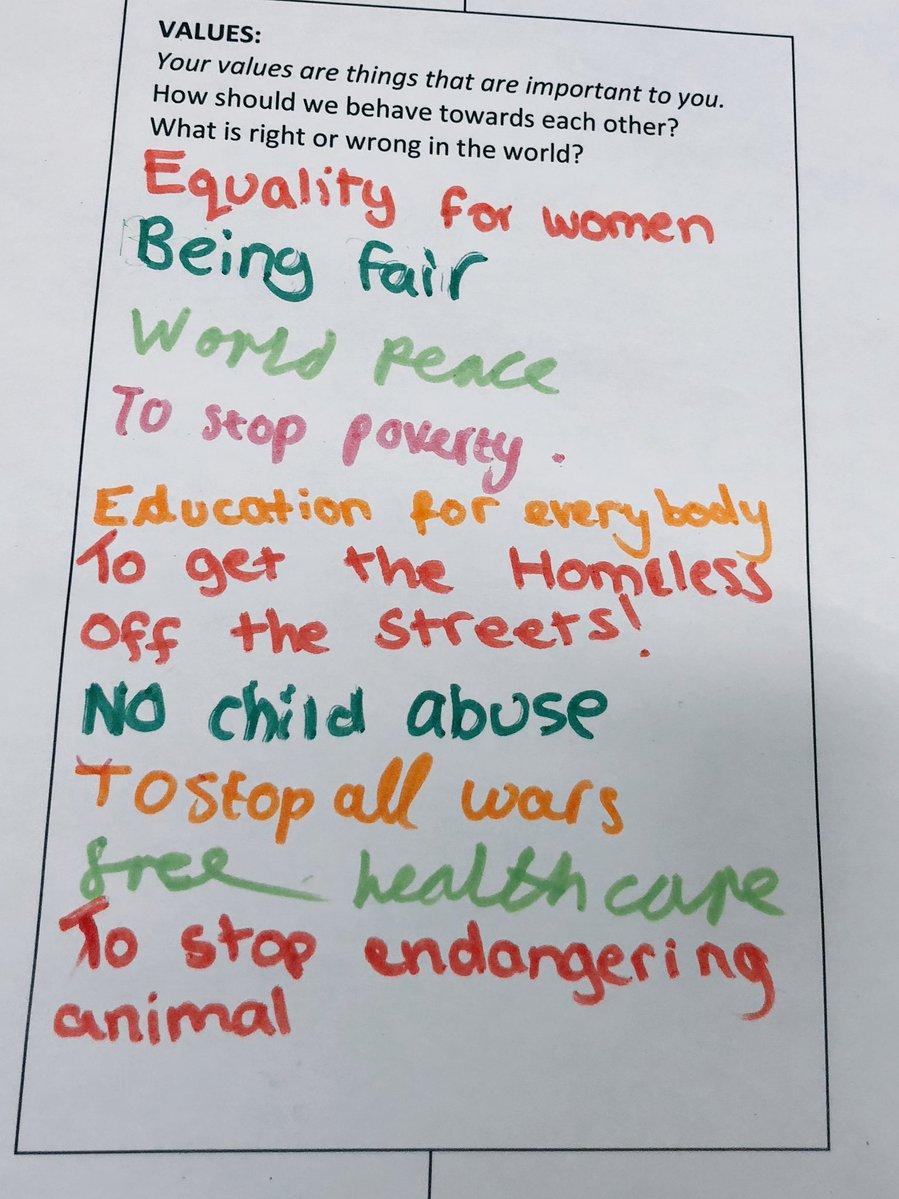 VALUES:
Your values are things that are important to you.
How should we behave towards each other?
What is right or wrong in the world?
Equality for women
Being fair
World Peace
To stop poverty.
Education for everybody
To get the Homeless
off the streets!
NO child abuse
To stop all wars
free health care
To stop endangering
animal